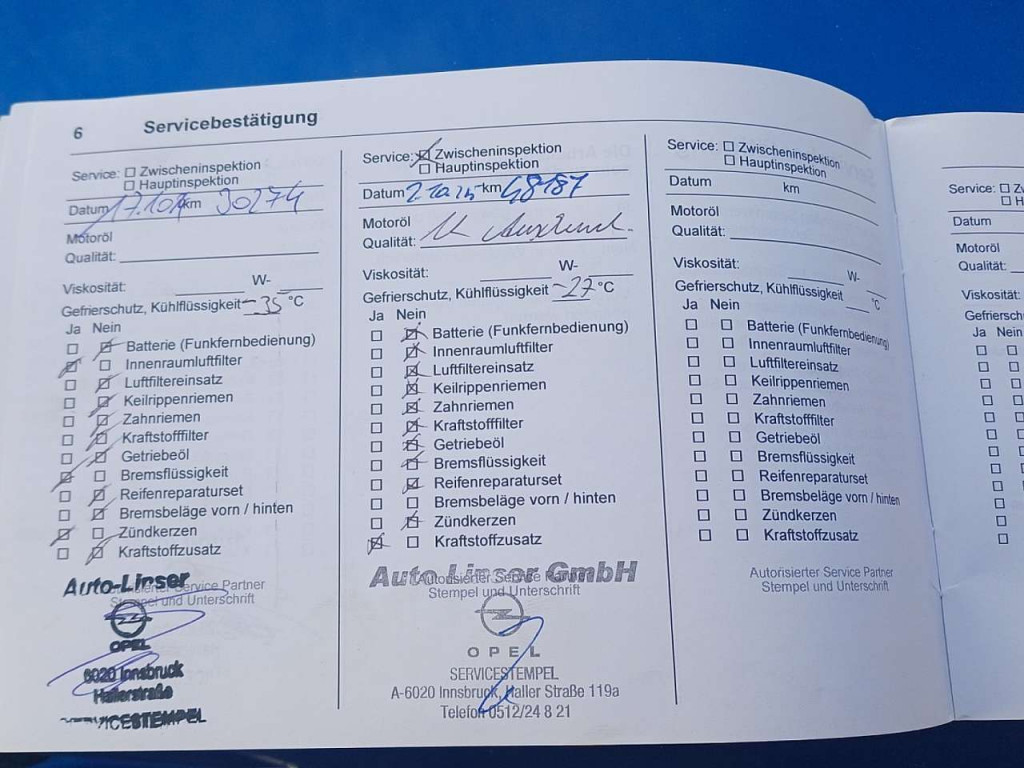 6 Servicebestätigung
Service: ☐ Zwischeninspektion
☐ Hauptinspektion
Datum 17.10.1 km 30274
Motoröl
Qualität:
Viskosität: W-
Gefrierschutz, Kühlflüssigkeit -35 °C
Ja Nein
☐ ☒ Batterie (Funkfernbedienung)
☒ ☐ Innenraumluftfilter
☐ ☒ Luftfiltereinsatz
☐ ☒ Keilrippenriemen
☐ ☒ Zahnriemen
☐ ☒ Kraftstofffilter
☐ ☒ Getriebeöl
☒ ☐ Bremsflüssigkeit
☐ ☒ Reifenreparaturset
☐ ☒ Bremsbeläge vorn / hinten
☒ ☐ Zündkerzen
☐ ☒ Kraftstoffzusatz
Auto-Linser
Autorisierter Service Partner
Stempel und Unterschrift
OPEL
6020 Innsbruck
Hallerstraße
SERVICESTEMPEL
Service: ☒ Zwischeninspektion
☐ Hauptinspektion
Datum km 48187
Motoröl
Qualität:
Viskosität: W-
Gefrierschutz, Kühlflüssigkeit -27 °C
Ja Nein
☐ ☒ Batterie (Funkfernbedienung)
☐ ☒ Innenraumluftfilter
☐ ☒ Luftfiltereinsatz
☐ ☒ Keilrippenriemen
☐ ☒ Zahnriemen
☐ ☒ Kraftstofffilter
☐ ☒ Getriebeöl
☐ ☒ Bremsflüssigkeit
☐ ☒ Reifenreparaturset
☐ ☐ Bremsbeläge vorn / hinten
☐ ☒ Zündkerzen
☒ ☐ Kraftstoffzusatz
Auto Linser GmbH
Autorisierter Service Partner
Stempel und Unterschrift
OPEL
SERVICESTEMPEL
A-6020 Innsbruck, Haller Straße 119a
Telefon 0512/24 8 21
Service: ☐ Zwischeninspektion
☐ Hauptinspektion
Datum km
Motoröl
Qualität:
Viskosität: W-
Gefrierschutz, Kühlflüssigkeit °C
Ja Nein
☐ ☐ Batterie (Funkfernbedienung)
☐ ☐ Innenraumluftfilter
☐ ☐ Luftfiltereinsatz
☐ ☐ Keilrippenriemen
☐ ☐ Zahnriemen
☐ ☐ Kraftstofffilter
☐ ☐ Getriebeöl
☐ ☐ Bremsflüssigkeit
☐ ☐ Reifenreparaturset
☐ ☐ Bremsbeläge vorn / hinten
☐ ☐ Zündkerzen
☐ ☐ Kraftstoffzusatz
Autorisierter Service Partner
Stempel und Unterschrift
Service: ☐ Z
☐ H
Datum
Motoröl
Qualität:
Viskosität:
Gefriersch
Ja Nein